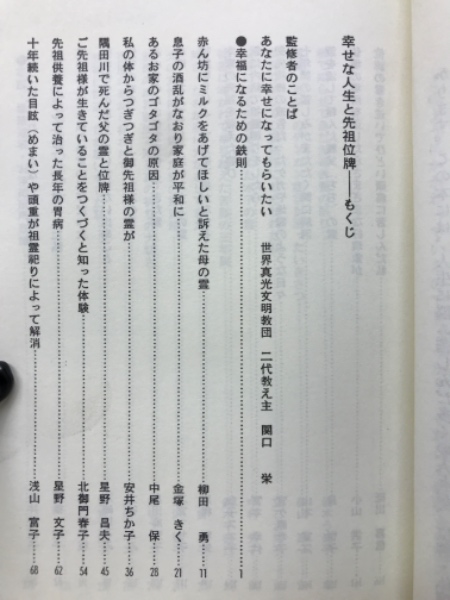 幸せな人生と先祖位牌――もくじ
監修者のことば
あなたに幸せになってもらいたい　世界真光文明教団　二代教え主　関口　栄
●幸福になるための鉄則……………1
赤ん坊にミルクをあげてほしいと訴えた母の霊……………柳田　勇……11
息子の酒乱がなおり家庭が平和に……………金塚　きく……21
あるお家のゴタゴタの原因……………中尾　保……28
私の体からつぎつぎと御先祖様の霊が……………安井ちか子……36
隅田川で死んだ父の霊と位牌……………星野　昌夫……45
ご先祖様が生きていることをつくづくと知った体験……………北御門春子……54
先祖供養によって治った長年の胃病……………星野　文子……62
十年続いた目眩（めまい）や頭重が祖霊祀りによって解消……………浅山　富子……68